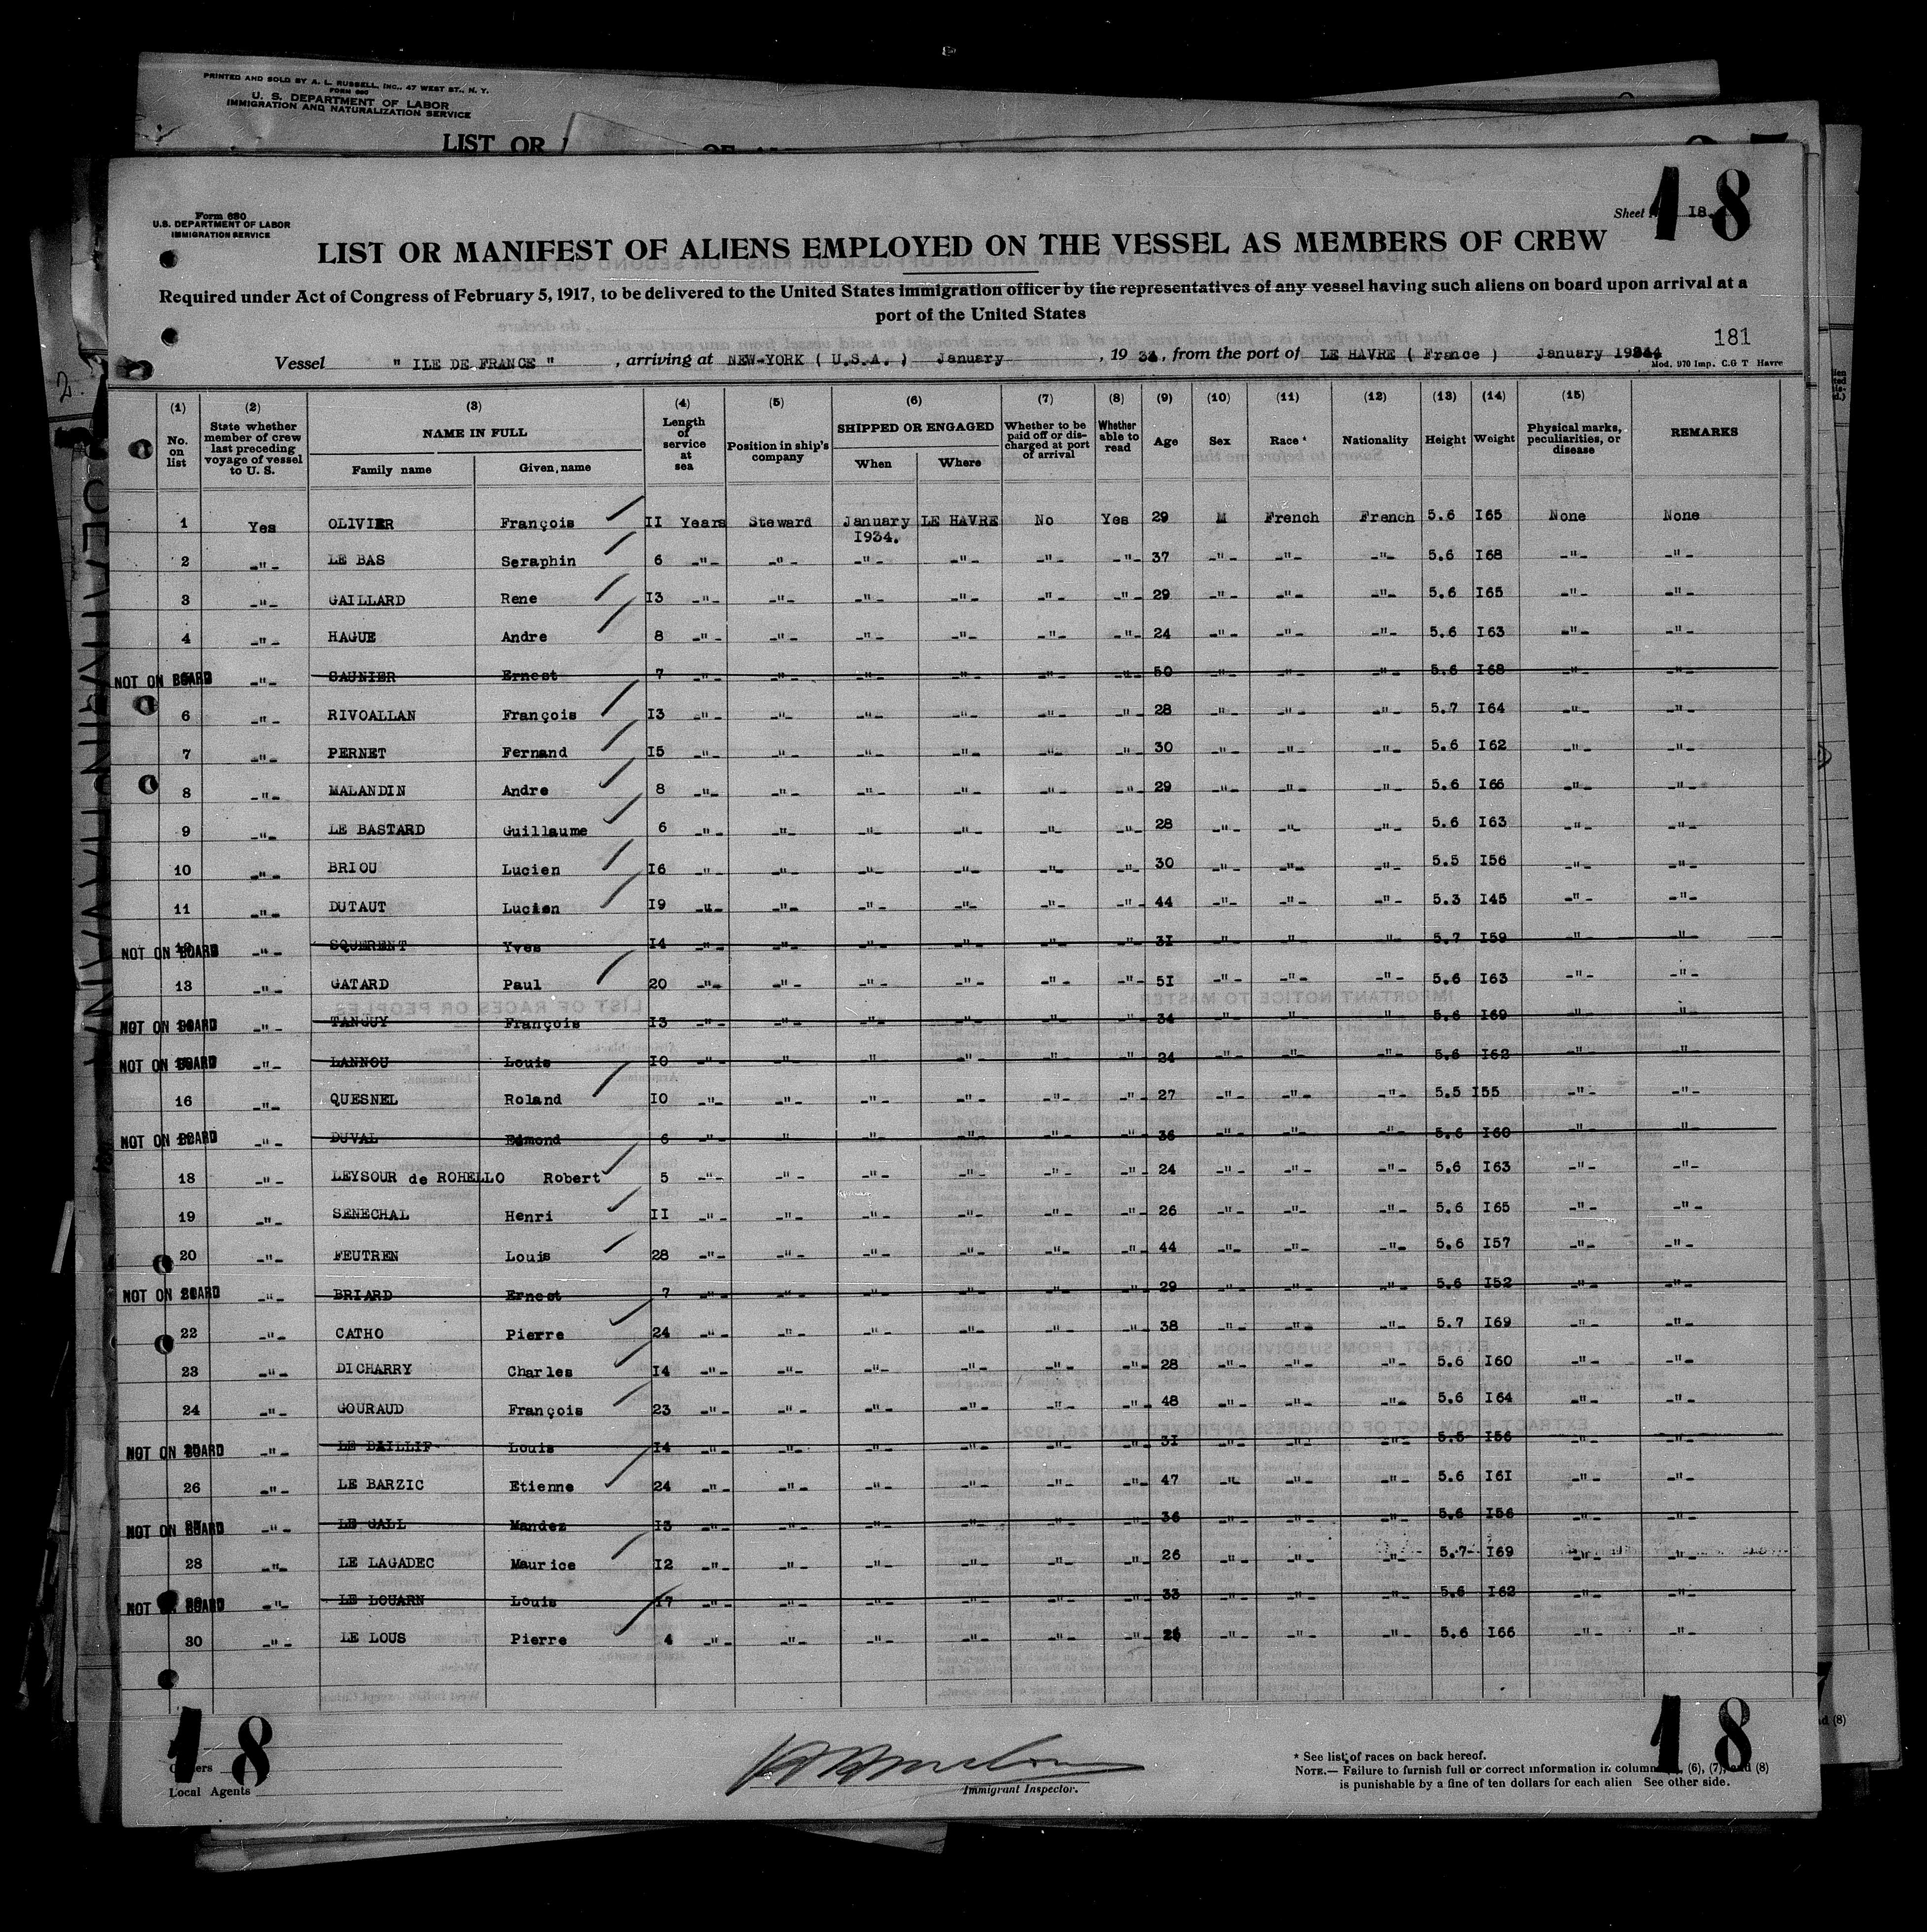 PRINTED AND SOLD BY A. L. RUSSELL, INC., 47 WEST ST., N. Y.
FORM 680
U. S. DEPARTMENT OF LABOR
IMMIGRATION AND NATURALIZATION SERVICE
LIST OR
Form 680
U.S. DEPARTMENT OF LABOR
IMMIGRATION SERVICE
Sheet I8. 18
LIST OR MANIFEST OF ALIENS EMPLOYED ON THE VESSEL AS MEMBERS OF CREW
Required under Act of Congress of February 5, 1917, to be delivered to the United States immigration officer by the representatives of any vessel having such aliens on board upon arrival at a
port of the United States
181
Vessel " ILE DE FRANCE " , arriving at NEW-YORK ( U.S.A. ) January , 19 34, from the port of LE HAVRE ( France ) January 1934
Mod. 970 Imp. C.G T Havre
(1) (2) (3) (4) (5) (6) (7) (8) (9) (10) (11) (12) (13) (14) (15)
No. on list State whether member of crew last preceding voyage of vessel to U. S. NAME IN FULL Family name Given name Length of service at sea Position in ship's company SHIPPED OR ENGAGED When Where Whether to be paid off or discharged at port of arrival Whether able to read Age Sex Race * Nationality Height Weight Physical marks, peculiarities, or disease REMARKS
1 Yes OLIVIER François II Years Steward January I934. LE HAVRE No Yes 29 M French French 5.6 I65 None None
2 -"- LE BAS Seraphin 6 -"- -"- -"- -"- -"- -"- 37 -"- -"- -"- 5.6 I68 -"- -"-
3 -"- GAILLARD Rene I3 -"- -"- -"- -"- -"- -"- 29 -"- -"- -"- 5.6 I65 -"- -"-
4 -"- HAGUE Andre 8 -"- -"- -"- -"- -"- -"- 24 -"- -"- -"- 5.6 I63 -"- -"-
NOT ON BOARD -"- SAUNIER Ernest 7 -"- -"- -"- -"- -"- -"- 50 -"- -"- -"- 5.6 I68 -"- -"-
6 -"- RIVOALLAN François I3 -"- -"- -"- -"- -"- -"- 28 -"- -"- -"- 5.7 I64 -"- -"-
7 -"- PERNET Fernand I5 -"- -"- -"- -"- -"- -"- 30 -"- -"- -"- 5.6 I62 -"- -"-
8 -"- MALANDIN Andre 8 -"- -"- -"- -"- -"- -"- 29 -"- -"- -"- 5.6 I66 -"- -"-
9 -"- LE BASTARD Guillaume 6 -"- -"- -"- -"- -"- -"- 28 -"- -"- -"- 5.6 I63 -"- -"-
10 -"- BRIOU Lucien I6 -"- -"- -"- -"- -"- -"- 30 -"- -"- -"- 5.5 I56 -"- -"-
11 -"- DUTAUT Lucien I9 -"- -"- -"- -"- -"- -"- 44 -"- -"- -"- 5.3 I45 -"- -"-
NOT ON BOARD -"- SQUERENT Yves I4 -"- -"- -"- -"- -"- -"- 3I -"- -"- -"- 5.7 I59 -"- -"-
13 -"- GATARD Paul 20 -"- -"- -"- -"- -"- -"- 5I -"- -"- -"- 5.6 I63 -"- -"-
NOT ON BOARD -"- TANGUY François I3 -"- -"- -"- -"- -"- -"- 34 -"- -"- -"- 5.6 I69 -"- -"-
NOT ON BOARD -"- LANNOU Louis I0 -"- -"- -"- -"- -"- -"- 24 -"- -"- -"- 5.6 I62 -"- -"-
16 -"- QUESNEL Roland I0 -"- -"- -"- -"- -"- -"- 27 -"- -"- -"- 5.5 I55 -"- -"-
NOT ON BOARD -"- DUVAL Edmond 6 -"- -"- -"- -"- -"- -"- 36 -"- -"- -"- 5.6 I60 -"- -"-
18 -"- LEYSOUR de ROHELLO Robert 5 -"- -"- -"- -"- -"- -"- 24 -"- -"- -"- 5.6 I63 -"- -"-
19 -"- SENECHAL Henri II -"- -"- -"- -"- -"- -"- 26 -"- -"- -"- 5.6 I65 -"- -"-
20 -"- FEUTREN Louis 28 -"- -"- -"- -"- -"- -"- 44 -"- -"- -"- 5.6 I57 -"- -"-
NOT ON BOARD -"- BRIARD Ernest 7 -"- -"- -"- -"- -"- -"- 29 -"- -"- -"- 5.6 I52 -"- -"-
22 -"- CATHO Pierre 24 -"- -"- -"- -"- -"- -"- 38 -"- -"- -"- 5.7 I69 -"- -"-
23 -"- DICHARRY Charles I4 -"- -"- -"- -"- -"- -"- 28 -"- -"- -"- 5.6 I60 -"- -"-
24 -"- GOURAUD François 23 -"- -"- -"- -"- -"- -"- 48 -"- -"- -"- 5.6 I64 -"- -"-
NOT ON BOARD -"- LE BAILLIF Louis I4 -"- -"- -"- -"- -"- -"- 3I -"- -"- -"- 5.5 I56 -"- -"-
26 -"- LE BARZIC Etienne 24 -"- -"- -"- -"- -"- -"- 47 -"- -"- -"- 5.6 I6I -"- -"-
NOT ON BOARD -"- LE GALL Mandez I3 -"- -"- -"- -"- -"- -"- 36 -"- -"- -"- 5.6 I56 -"- -"-
28 -"- LE LAGADEC Maurice I2 -"- -"- -"- -"- -"- -"- 26 -"- -"- -"- 5.7 I69 -"- -"-
NOT ON BOARD -"- LE LOUARN Louis I7 -"- -"- -"- -"- -"- -"- 33 -"- -"- -"- 5.6 I62 -"- -"-
30 -"- LE LOUS Pierre 4 -"- -"- -"- -"- -"- -"- -"- -"- -"- 5.6 I66 -"- -"-
18 18
Owners
Local Agents
Immigrant Inspector.
* See list of races on back hereof.
NOTE.— Failure to furnish full or correct information in columns (6), (7), and (8)
is punishable by a fine of ten dollars for each alien See other side.